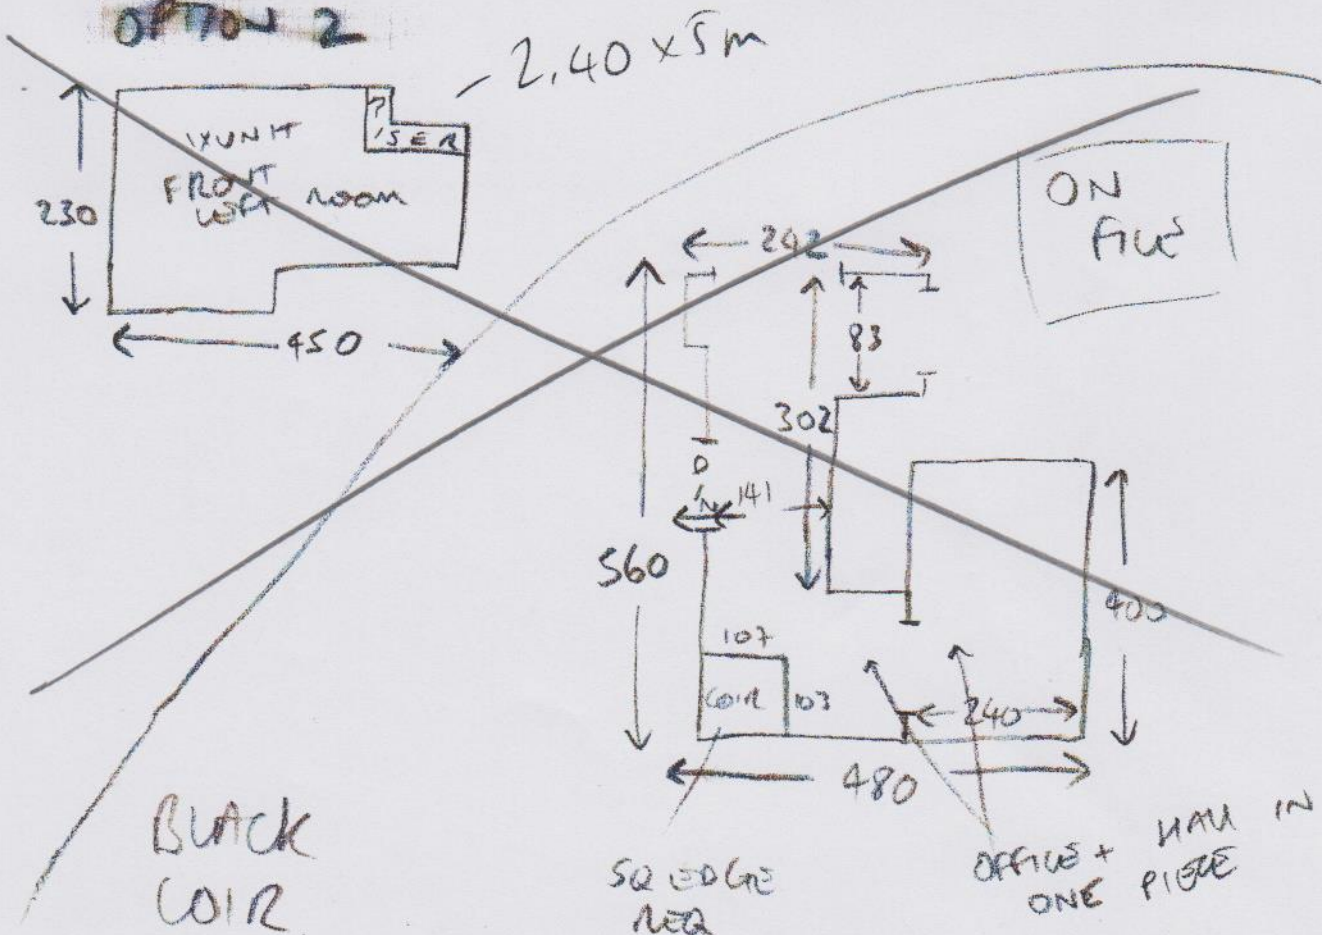 OPTION 2
2.40 x 5m
1XUNIT
FRONT
LOFT ROOM
?
'SER
230
450
ON
FILE
242
83
302
D
'N
141
560
400
107
COIR
103
240
480
BLACK
COIR
SQ EDGE
REQ
OFFICE + HALL IN
ONE PIECE